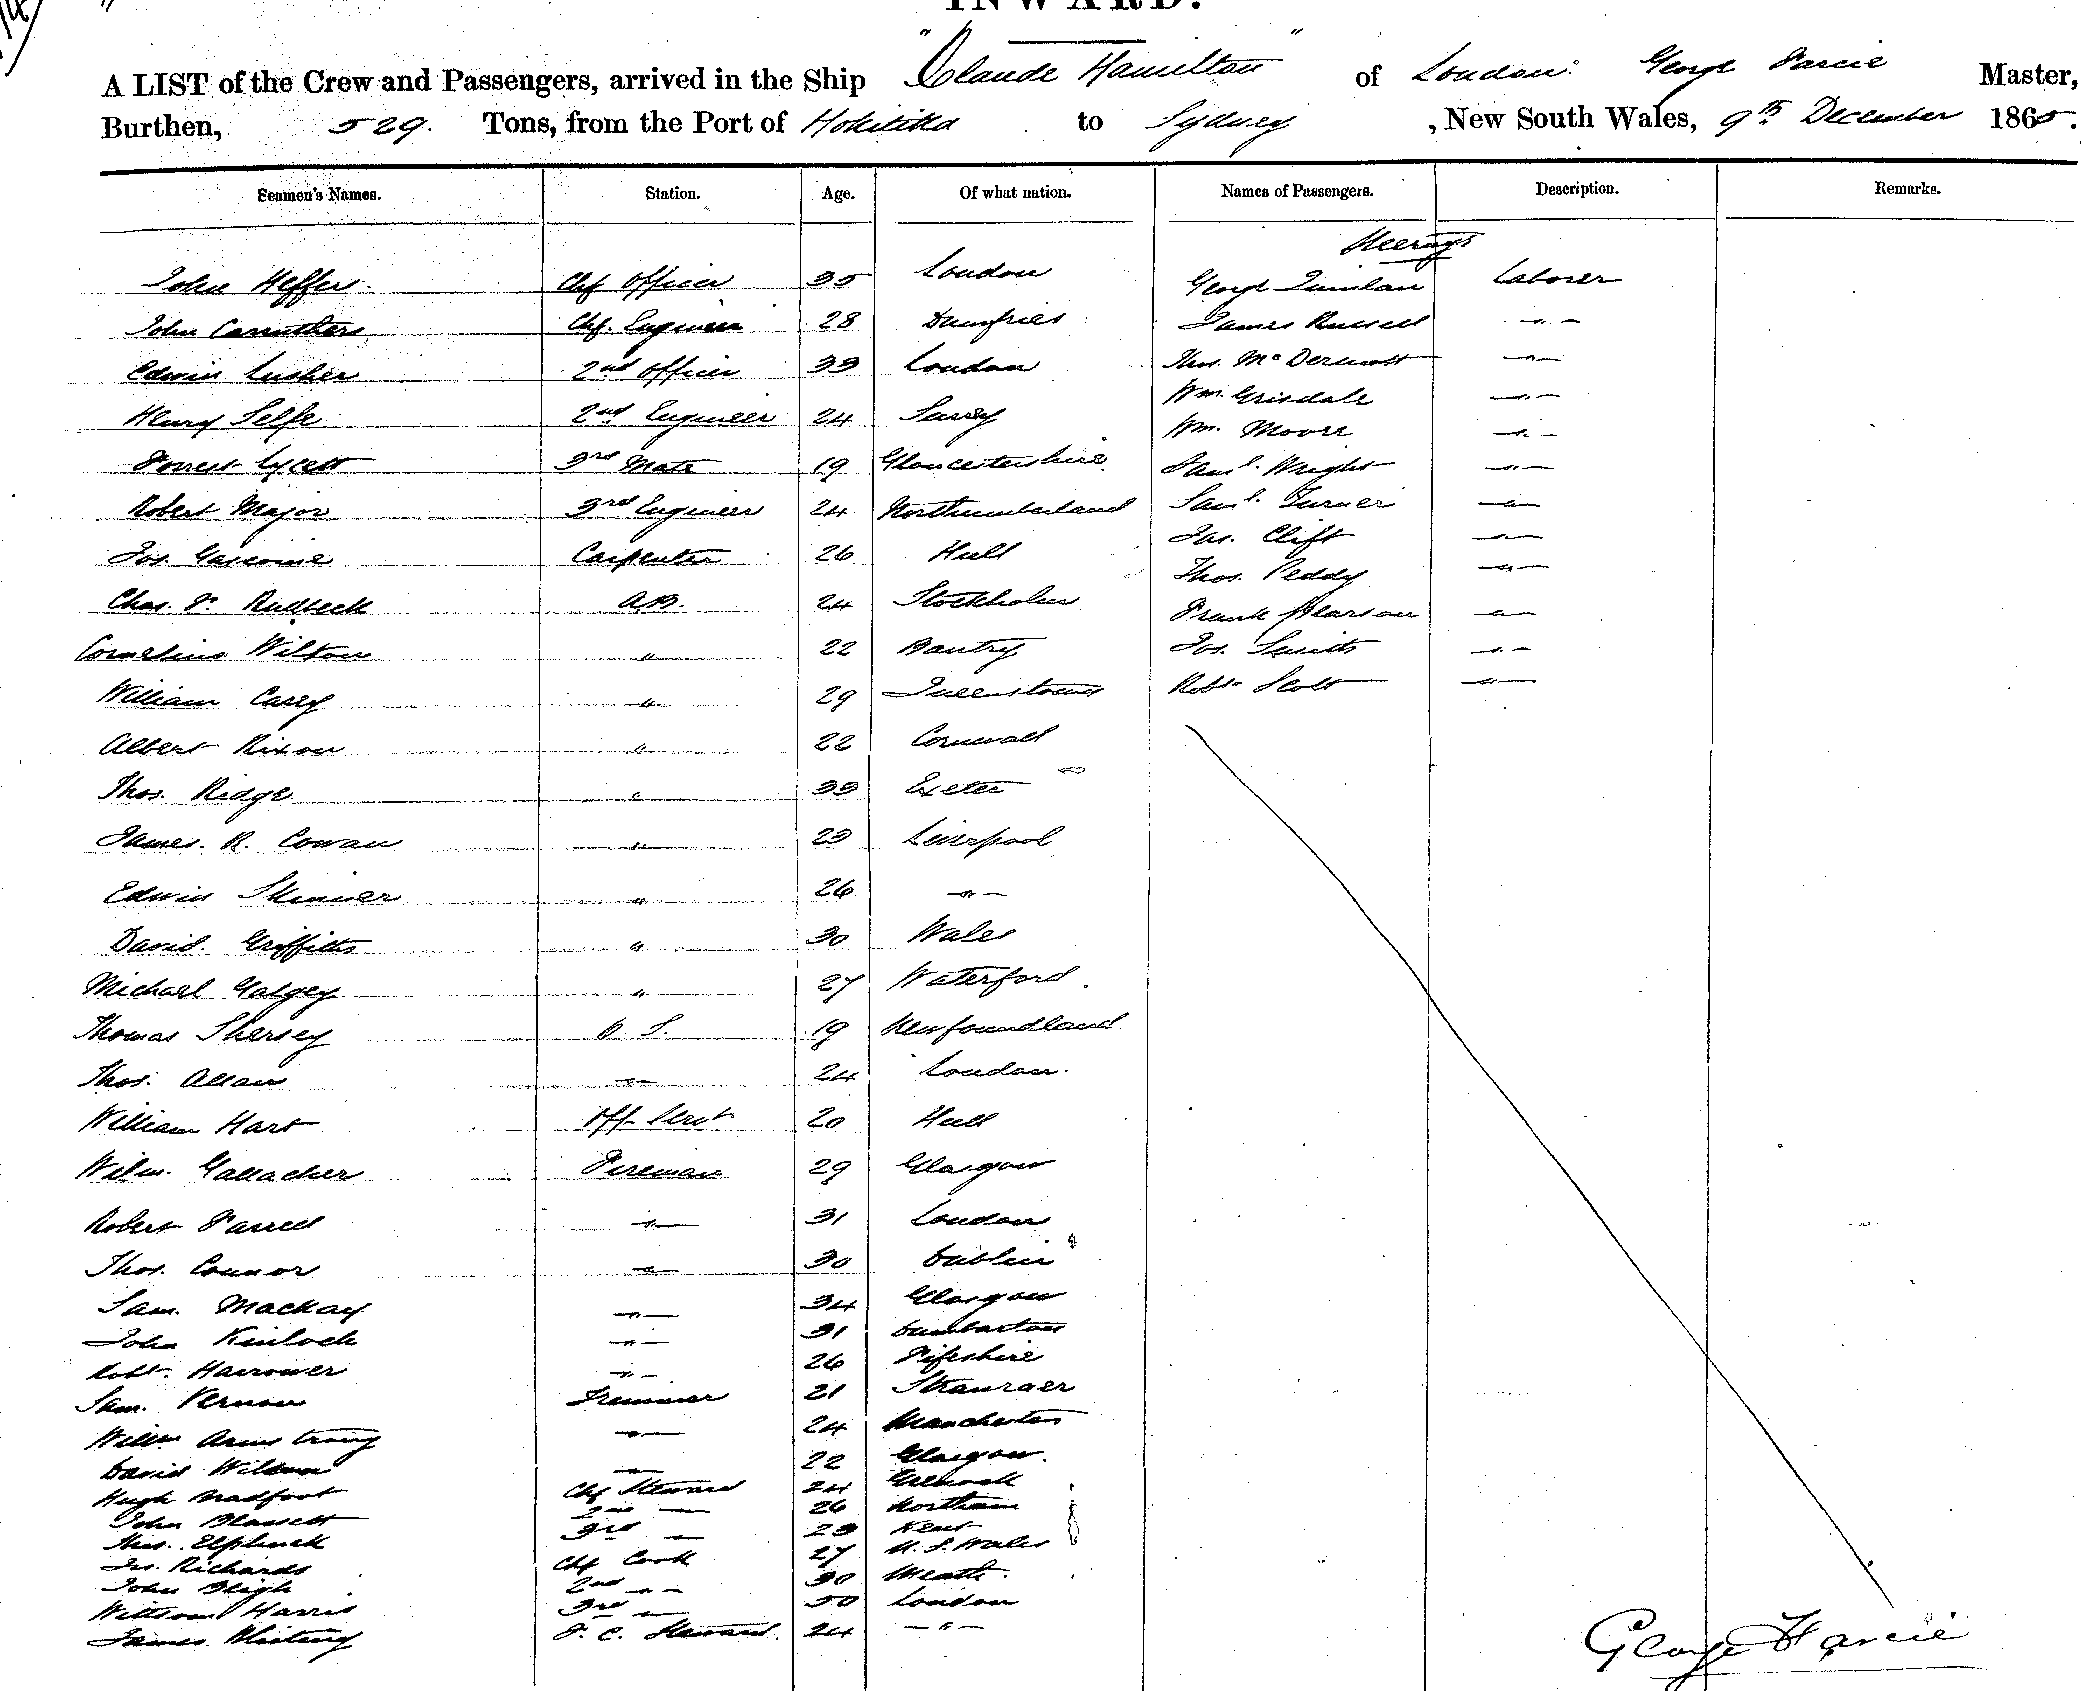 INWARD.
A LIST of the Crew and Passengers, arrived in the Ship "Claude Hamilton" of London. George Master,
Burthen, 529. Tons, from the Port of Hokitika to Sydney, New South Wales, 9th December 1865.
Seamen's Names. Station. Age. Of what nation. Names of Passengers. Description. Remarks.
Steerage
John Heffer Chf Officer 35 London George Quinlan Laborer
John Carruthers Chf. Engineer 28 Dumfries James Russell " -
Edwin Lusher 2nd Officer 33 London Thos. McDermott "
Henry Selfe 2nd Engineer 24 Surrey Wm. Grisdale "
Forrest Lycett 3rd Mate 19 Gloucestershire Wm. Moore "
Robert Major 3rd Engineer 24 Northumberland Saml. Wright "
Jos. Gascoine Carpenter 26 Hull Saml. Turner "
Chas. F. Rudbeck A.B. 24 Stockholm Jas. Clift "
Cornelius Wilton " 22 Bantry Thos. Peddy "
William Carey " 29 Queenstown Frank Pearson "
Albert Rixon " 22 Cornwall Jos. Smith "
Thos. Ridge " 33 Exeter Robt. Scott "
James. R. Cowan " 23 Liverpool
Edwin Skinner " 26 "
David. Griffiths " 30 Wales
Michael Galgey " 27 Waterford
Thomas Shersey O. S. 19 Newfoundland
Thos. Allan " 24 London.
William Hart Off. Servt 20 Hull
Willm. Gallacher Fireman 29 Glasgow
Robert Farrell " 31 London
Thos. Connor " 30 Dublin
Sam. Mackay " 34 Glasgow
John Kinloch " 31 Dumbarton
Robt. Harrower " 26 Fifeshire
Sam. Vernon Trimmer 21 Stranraer
Willm Armstrong " 24 Manchester
David Wilson " 22 Glasgow.
Hugh Bradfoot Chf Steward 24 Greenock
John Blassett 2nd " 26 Northam
Thos. Elphick 3rd " 23 Kent
Jas. Richards Chf Cook 27 N. S. Wales
John Bligh 2nd " 30 Meath.
William Harris 3rd " 50 London
James Whiting F. C. Steward. 24 "
George